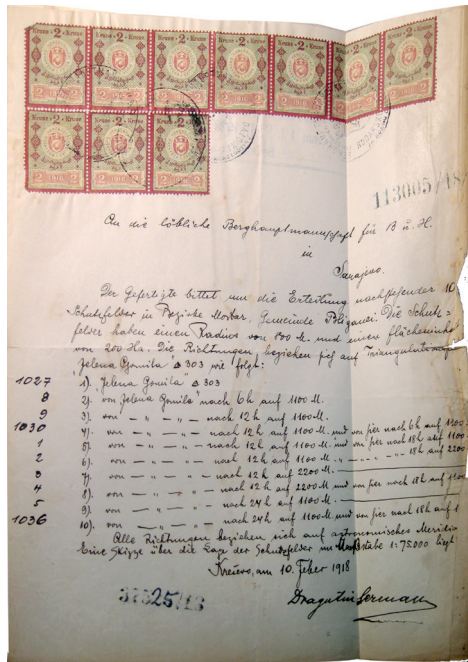 Krone 2 Krone Krone 2 Krone Krone 2 Krone Krone 2 Krone Krone 2 Krone Krone 2 Krone Krone 2 Krone
Krone 2 Krone Krone 2 Krone Krone 2 Krone
113005/18
An die löbliche Berghauptmannschaft für B. u. H.
in
Sarajevo.
Der Gefertigte bittet um die Erteilung nachstehender 10
Schutzfelder in Bezirke Mostar, Gemeinde Die Schutz=
felder haben einen Radius von 800 M. und einen Flächeninh
von 200 Ha. Die Richtungen beziehen sich auf
"Jelena Gomila" Δ 303 wie folgt:
1027 1). "Jelena Gomila" Δ 303
8 2). von Jelena Gomila" nach 6h auf 1100 M.
9 3). von — " — " — nach 12h auf 1100 M.
1030 4). von — " — " — nach 12h auf 1100 M. und von hier nach 6h auf 1100
1 5). von — " — " — nach 12h auf 1100 M. und von hier nach 18h auf 1100
2 6). von — " — " — nach 12h auf 1100 M. — " — " — 18h auf 2200
3 7). von — " — " — nach 12h auf 2200 M.
4 8). von — " — " — nach 12h auf 2200 M. und von hier nach 18h auf
5 9). von — " — " — nach 24h auf 1100 M.
1036 10). von — " — " — nach 24h auf 1100 M. und von hier nach 18h auf 1
Alle Richtungen beziehen sich auf astronomischen Meridia
Eine Skizze über die Lage der Schutzfelder im Maßstabe 1:75.000 liegt
Kreševo, am 10. Feber 1918
37325/18
Dragutin